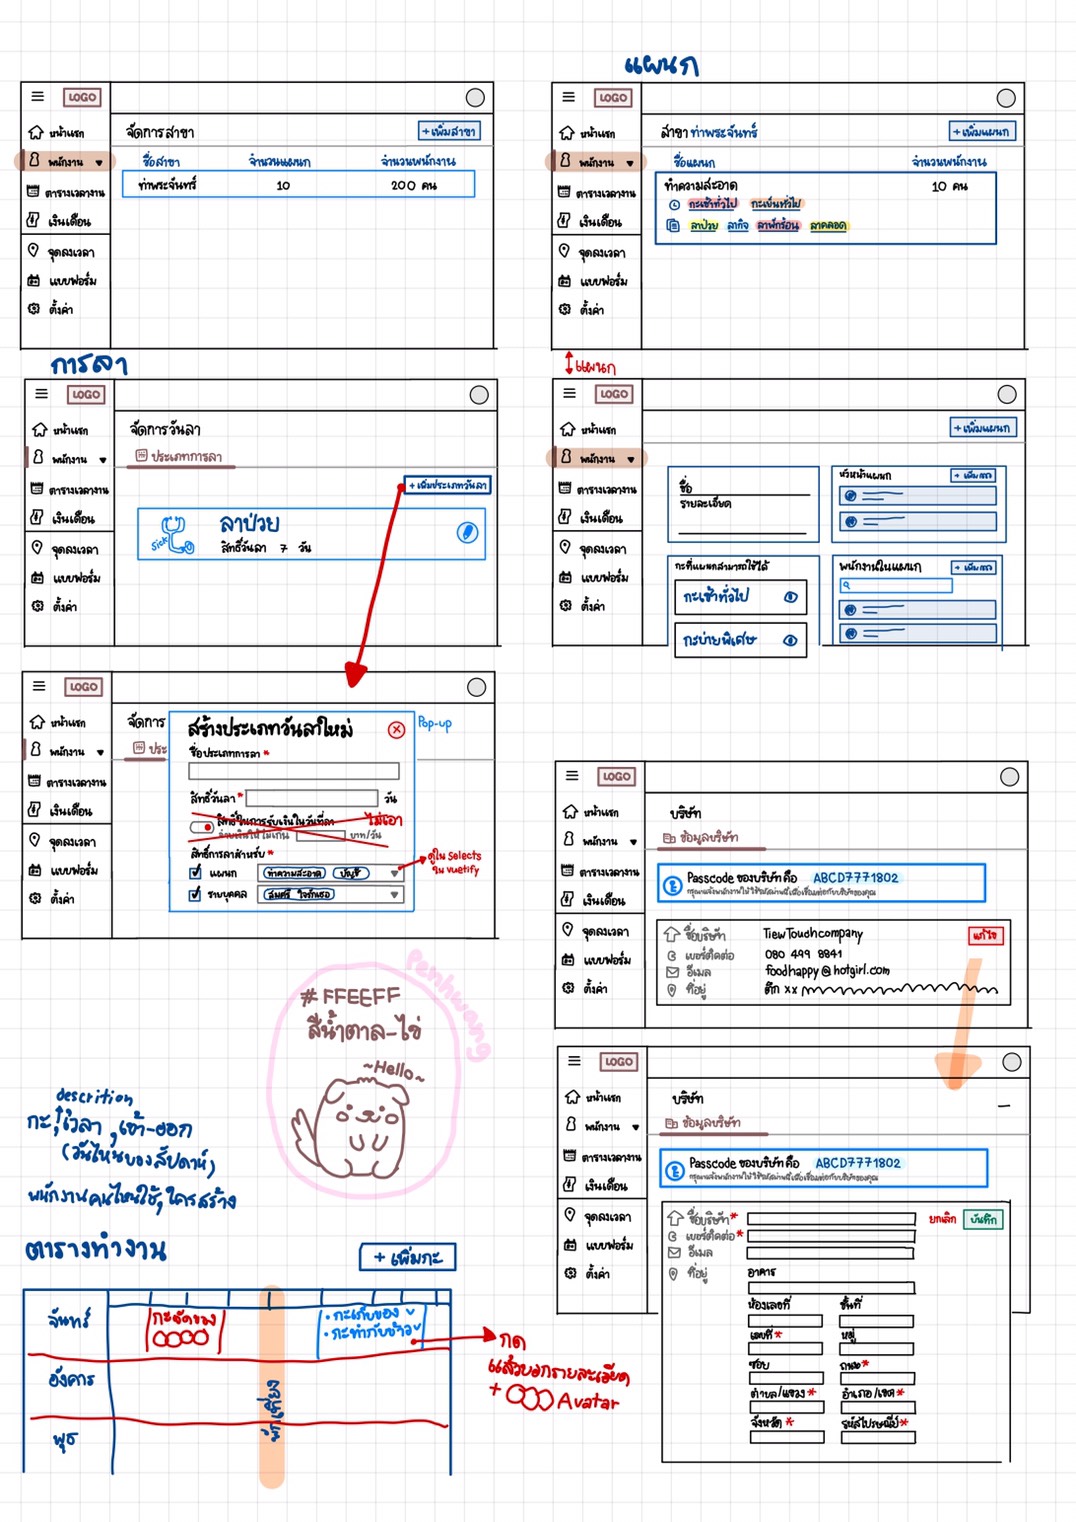 LOGO
หน้าแรก
พนักงาน
ตารางเวลางาน
เงินเดือน
จุดลงเวลา
แบบฟอร์ม
ตั้งค่า
จัดการสาขา
+เพิ่มสาขา
ชื่อสาขา จำนวนแผนก จำนวนพนักงาน
ท่าพระจันทร์ 10 200 คน
แผนก
LOGO
หน้าแรก
พนักงาน
ตารางเวลางาน
เงินเดือน
จุดลงเวลา
แบบฟอร์ม
ตั้งค่า
สาขา ท่าพระจันทร์
+เพิ่มแผนก
ชื่อแผนก จำนวนพนักงาน
ทำความสะอาด 10 คน
กะเช้าทั่วไป กะเย็นทั่วไป
ลาป่วย ลากิจ ลาพักร้อน ลาคลอด
การลา
LOGO
หน้าแรก
พนักงาน
ตารางเวลางาน
เงินเดือน
จุดลงเวลา
แบบฟอร์ม
ตั้งค่า
จัดการวันลา
ประเภทการลา
+ เพิ่มประเภทวันลา
Sick
ลาป่วย
สิทธิ์วันลา 7 วัน
แผนก
LOGO
หน้าแรก
พนักงาน
ตารางเวลางาน
เงินเดือน
จุดลงเวลา
แบบฟอร์ม
ตั้งค่า
+เพิ่มแผนก
ชื่อ
รายละเอียด
หัวหน้าแผนก
กะที่แผนกสามารถใช้ได้
กะเช้าทั่วไป
กะบ่ายพิเศษ
พนักงานในแผนก
LOGO
หน้าแรก
พนักงาน
ตารางเวลางาน
เงินเดือน
จุดลงเวลา
แบบฟอร์ม
ตั้งค่า
จัดการ
ประ
Pop-up
สร้างประเภทวันลาใหม่
ชื่อประเภทการลา *
สิทธิ์วันลา * วัน
สิทธิ์ในการรับเงินในวันที่ลา ไม่เอา
จ่ายเงินให้ไม่เกิน บาท/วัน
สิทธิ์การลาสำหรับ *
แผนก ทำความสะอาด บัญชี
รายบุคคล สมศรี ใจรักเธอ
ดูใน Selects
ใน vuetify
LOGO
หน้าแรก
พนักงาน
ตารางเวลางาน
เงินเดือน
จุดลงเวลา
แบบฟอร์ม
ตั้งค่า
บริษัท
ข้อมูลบริษัท
Passcode ของบริษัท คือ ABCD7771802
ชื่อบริษัท TiewTouchcompany
แก้ไข
เบอร์ติดต่อ 080 499 8841
อีเมล foodhappy@hotgirl.com
ที่อยู่ ตึก xx
Penhwang
#FFEEFF
สีน้ำตาล-ไข่
~Hello~
LOGO
หน้าแรก
พนักงาน
ตารางเวลางาน
เงินเดือน
จุดลงเวลา
แบบฟอร์ม
ตั้งค่า
บริษัท
ข้อมูลบริษัท
Passcode ของบริษัท คือ ABCD7771802
ชื่อบริษัท *
ยกเลิก บันทึก
เบอร์ติดต่อ *
อีเมล
ที่อยู่
อาคาร
ห้องเลขที่ ชั้นที่
เลขที่ * หมู่
ซอย ถนน *
ตำบล/แขวง * อำเภอ/เขต *
จังหวัด * รหัสไปรษณีย์ *
descrition
กะ, เวลา, เข้า-ออก
(วันไหนของสัปดาห์)
พนักงานคนไหนใช้, ใครสร้าง
ตารางทำงาน
+ เพิ่มกะ
จันทร์
กะจัดของ
· กะเก็บของ
· กะทำกับข้าว
อังคาร
พุธ
พักเที่ยง
กด
แล้วบอกรายละเอียด
+ Avatar